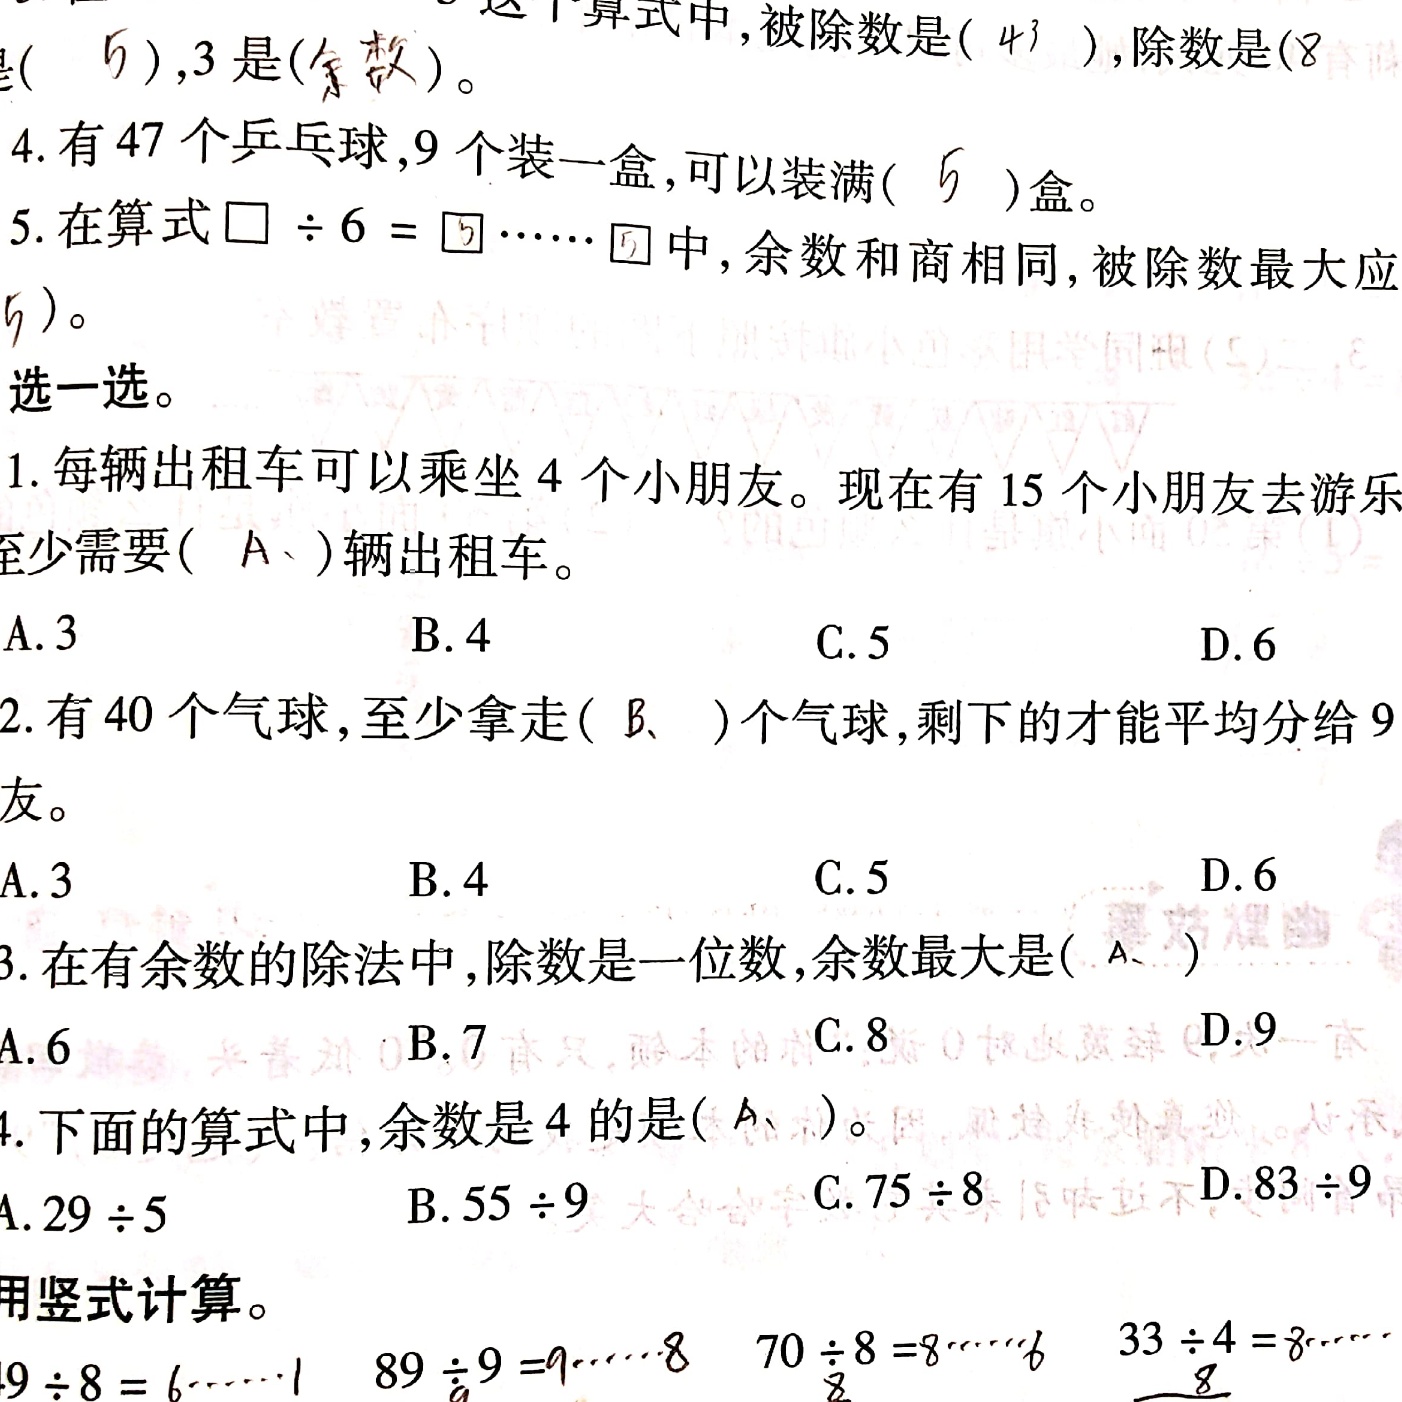 这个算式中,被除数是( 43 ),除数是(8
是( 5 ),3 是(余数)。
4. 有 47 个乒乓球,9 个装一盒,可以装满( 5 )盒。
5. 在算式□ ÷ 6 = 5 …… 5 中,余数和商相同,被除数最大应
5)。
选一选。
1. 每辆出租车可以乘坐 4 个小朋友。现在有 15 个小朋友去游乐
至少需要( A、)辆出租车。
A. 3 B. 4 C. 5 D. 6
2. 有 40 个气球,至少拿走( B、 )个气球,剩下的才能平均分给 9
友。
A. 3 B. 4 C. 5 D. 6
3. 在有余数的除法中,除数是一位数,余数最大是( A、 )
A. 6 B. 7 C. 8 D. 9
4. 下面的算式中,余数是 4 的是( A、 )。
A. 29 ÷ 5 B. 55 ÷ 9 C. 75 ÷ 8 D. 83 ÷ 9
用竖式计算。
49 ÷ 8 = 6……1 89 ÷ 9 = 9……8 70 ÷ 8 = 8……6 33 ÷ 4 = 8……
9 8 8